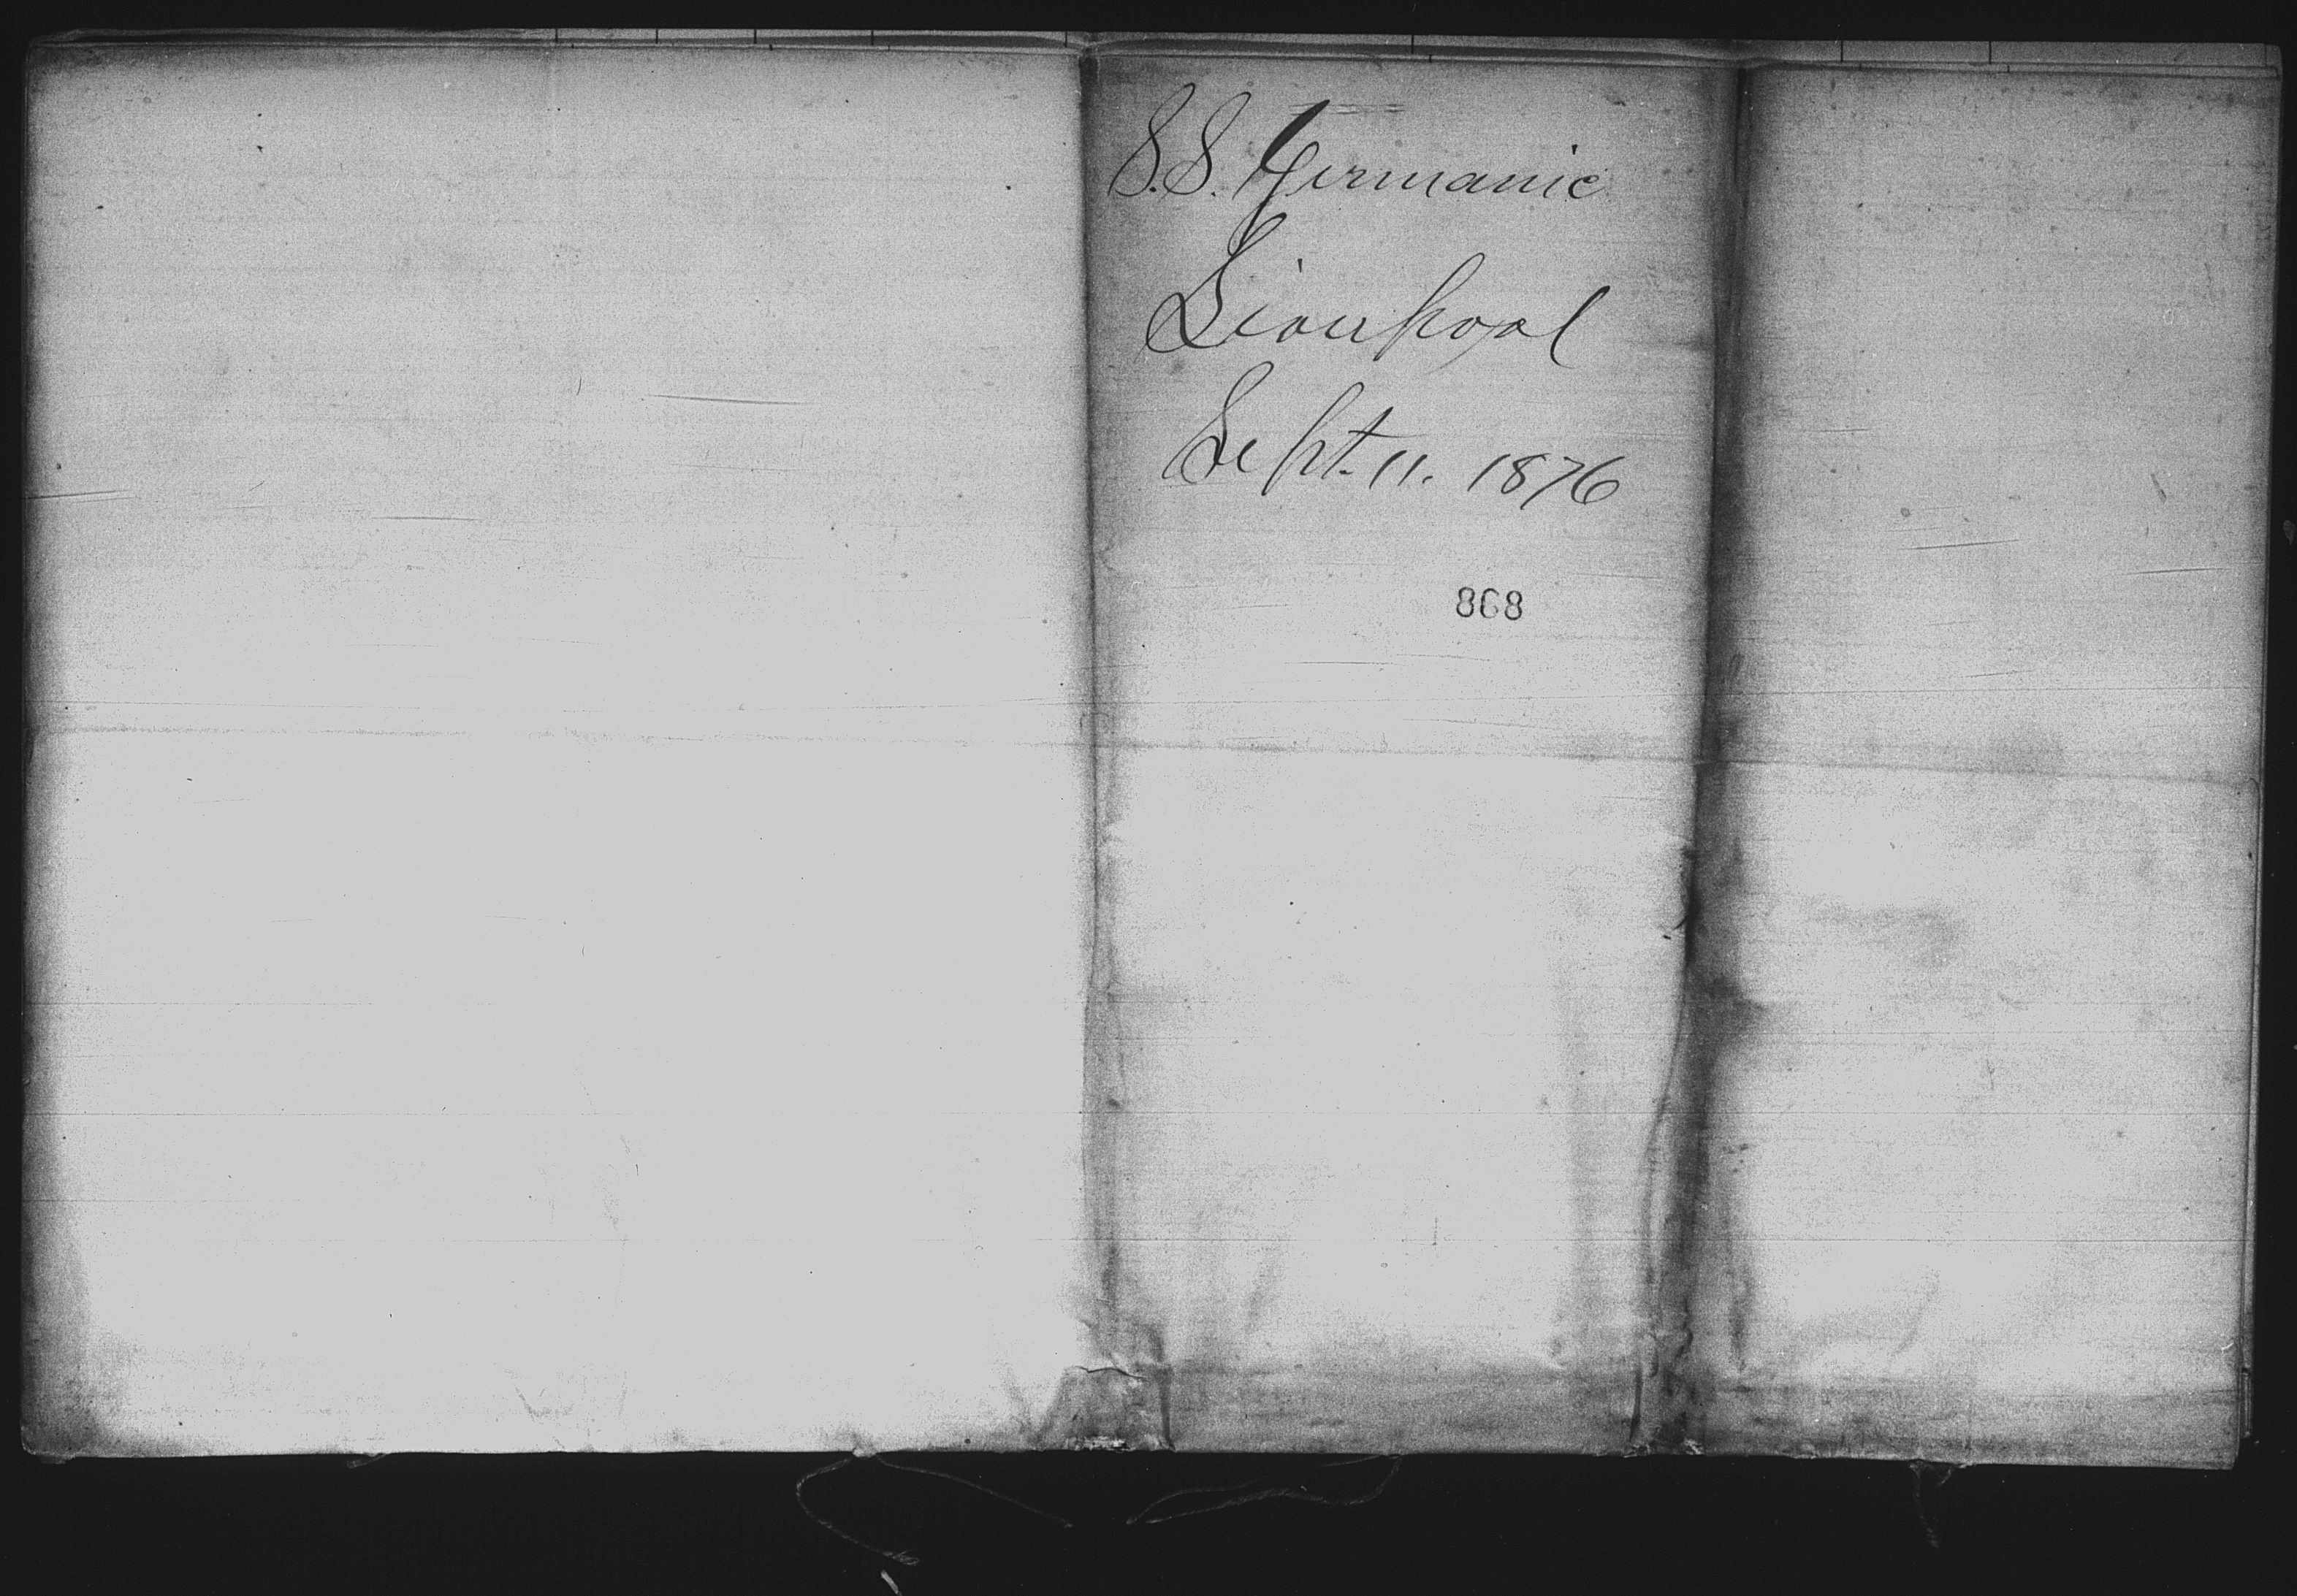 S.S. Germanic
Liverpool
Sept. 11. 1876
868